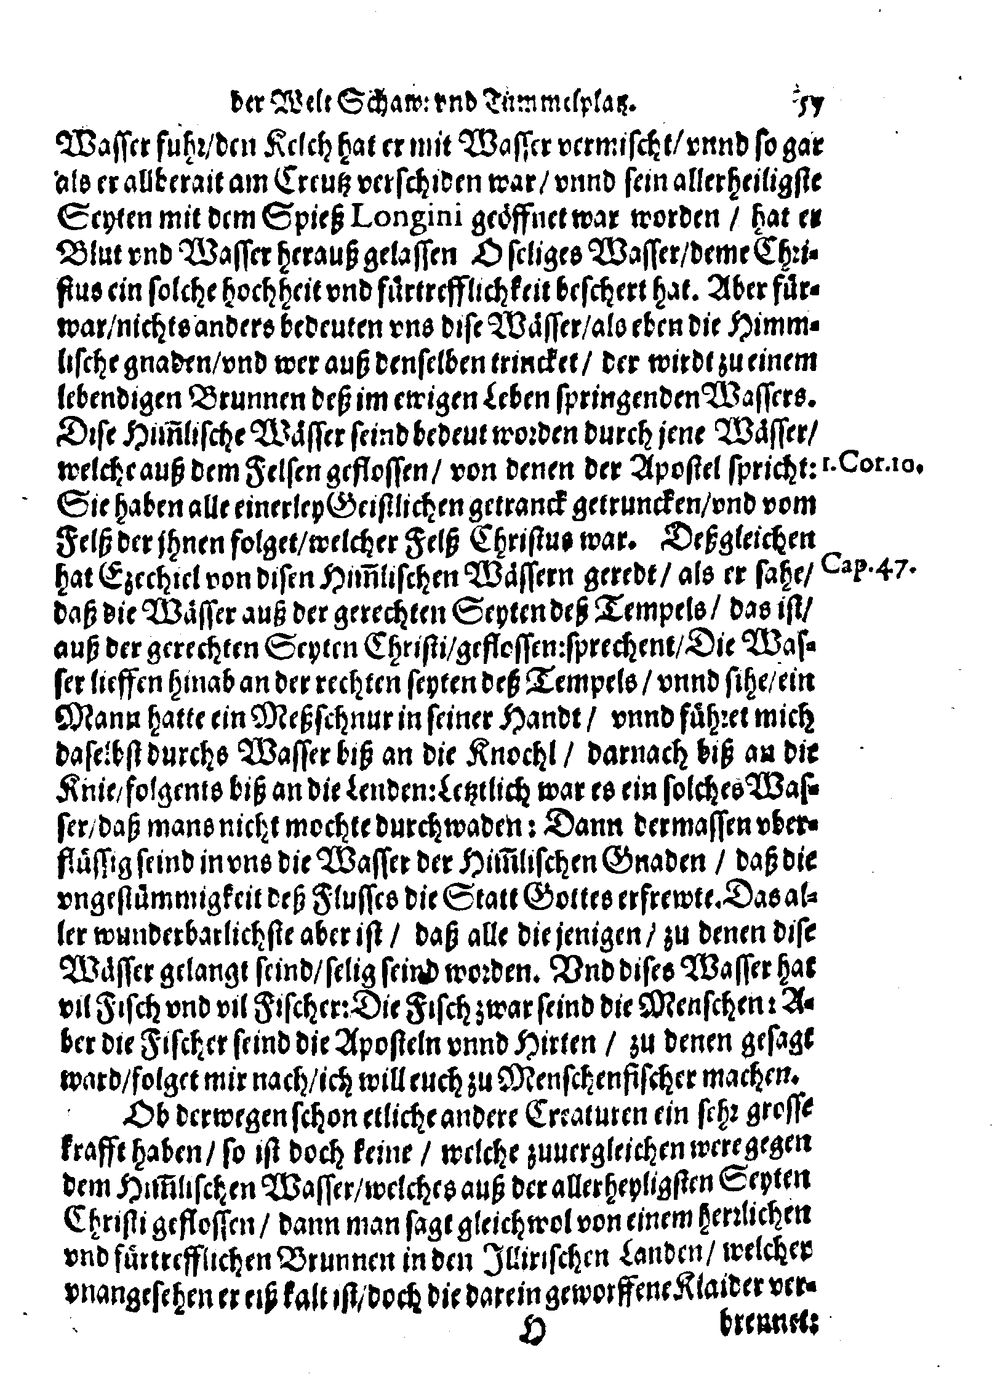 der Welt Schaw: vnd Tummelplatz. 57
Wasser fuhr/den Kelch hat er mit Wasser vermischt/vnnd so gar
als er allberait am Creutz verschiden war/vnnd sein allerheiligste
Seyten mit dem Spieß Longini geöffnet war worden / hat er
Blut vnd Wasser herauß gelassen O seliges Wasser/deme Chri-
stus ein solche hochheit vnd fürtrefflichkeit beschert hat. Aber für-
war/nichts anders bedeuten vns dise Wässer/als eben die Himm-
lische gnaden/vnd wer auß denselben trincket / der wirdt zu einem
lebendigen Brunnen deß im ewigen Leben springenden Wassers.
Dise Him̃lische Wässer seind bedeut worden durch jene Wässer/
welche auß dem Felsen geflossen/ von denen der Apostel spricht: 1.Cor.10.
Sie haben alle einerley Geistlichen getranck getruncken/vnd vom
Felß der jhnen folget/welcher Felß Christus war. Deßgleichen
hat Ezechiel von disen Him̃lischen Wässern geredt/ als er sahe/ Cap.47.
daß die Wässer auß der gerechten Seyten deß Tempels/ das ist/
auß der gerechten Seyten Christi/geflossen:sprechent/Die Was-
ser lieffen hinab an der rechten seyten deß Tempels/ vnnd sihe/ein
Mann hatte ein Meßschnur in seiner Handt/ vnnd führet mich
daselbst durchs Wasser biß an die Knochl/ darnach biß an die
Knie/folgents biß an die Lenden:Letztlich war es ein solches Was-
ser/daß mans nicht mochte durchwaden: Dann dermassen vber-
flüssig seind in vns die Wasser der Him̃lischen Gnaden / daß die
vngestümmigkeit deß Flusses die Statt Gottes erfrewte.Das al-
ler wunderbarlichste aber ist / daß alle die jenigen/ zu denen dise
Wässer gelangt seind/selig seind worden. Vnd dises Wasser hat
vil Fisch vnd vil Fischer:Die Fisch zwar seind die Menschen: A-
ber die Fischer seind die Aposteln vnnd Hirten / zu denen gesagt
ward/folget mir nach/ich will euch zu Menschenfischer machen.
Ob derwegen schon etliche andere Creaturen ein sehr grosse
krafft haben/ so ist doch keine / welche zuuergleichen were gegen
dem Him̃lischen Wasser/welches auß der allerheyligsten Seyten
Christi geflossen/ dann man sagt gleichwol von einem herrlichen
vnd fürtrefflichen Brunnen in den Illirischen Landen/ welcher
vnangesehen er eiß kalt ist/doch die darein geworffene Klaider ver-
H brennet: